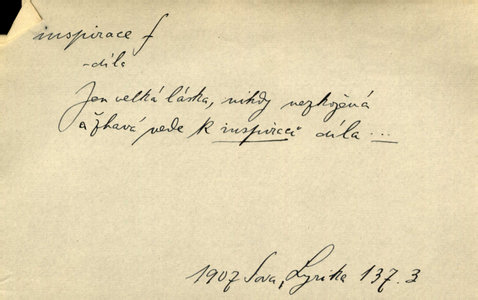 inspirace f
-díla
Jen velká láska, nikdy nezkojená
a žhavá vede k inspiraci díla ...
1907 Sova, Lyrika 137.3